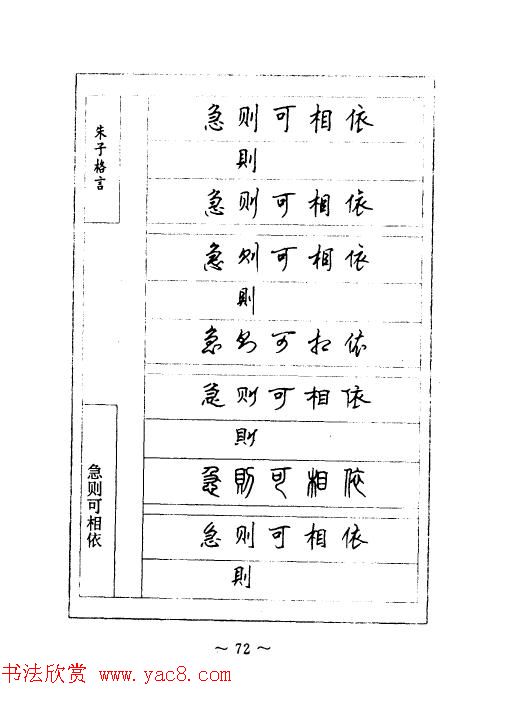 朱子格言
急则可相依
則
急则可相依
急则可相依
則
急则可相依
急则可相依
則
急則可相依
急则可相依
則
急则可相依
~ 72 ~
书法欣赏 www.yac8.com